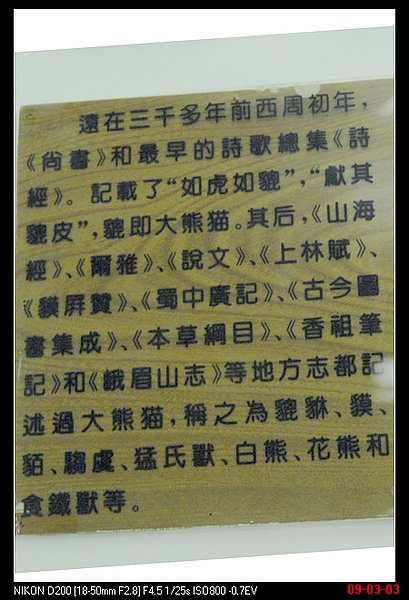 遠在三千多年前西周初年，
《尙書》和最早的詩歌總集《詩
經》。記載了“如虎如貔”，“獻其
貔皮”，貔即大熊猫。其后，《山海
經》、《爾雅》、《說文》、《上林賦》、
《貘屏贊》、《蜀中廣記》、《古今圖
書集成》、《本草綱目》、《香祖筆
記》和《峨眉山志》等地方志都記
述過大熊猫，稱之為貔貅、貘、
貊、騶虞、猛氏獸、白熊、花熊和
食鐵獸等。
NIKON D200 [18-50mm F2.8] F4.5 1/25s ISO800 -0.7EV
09-03-03